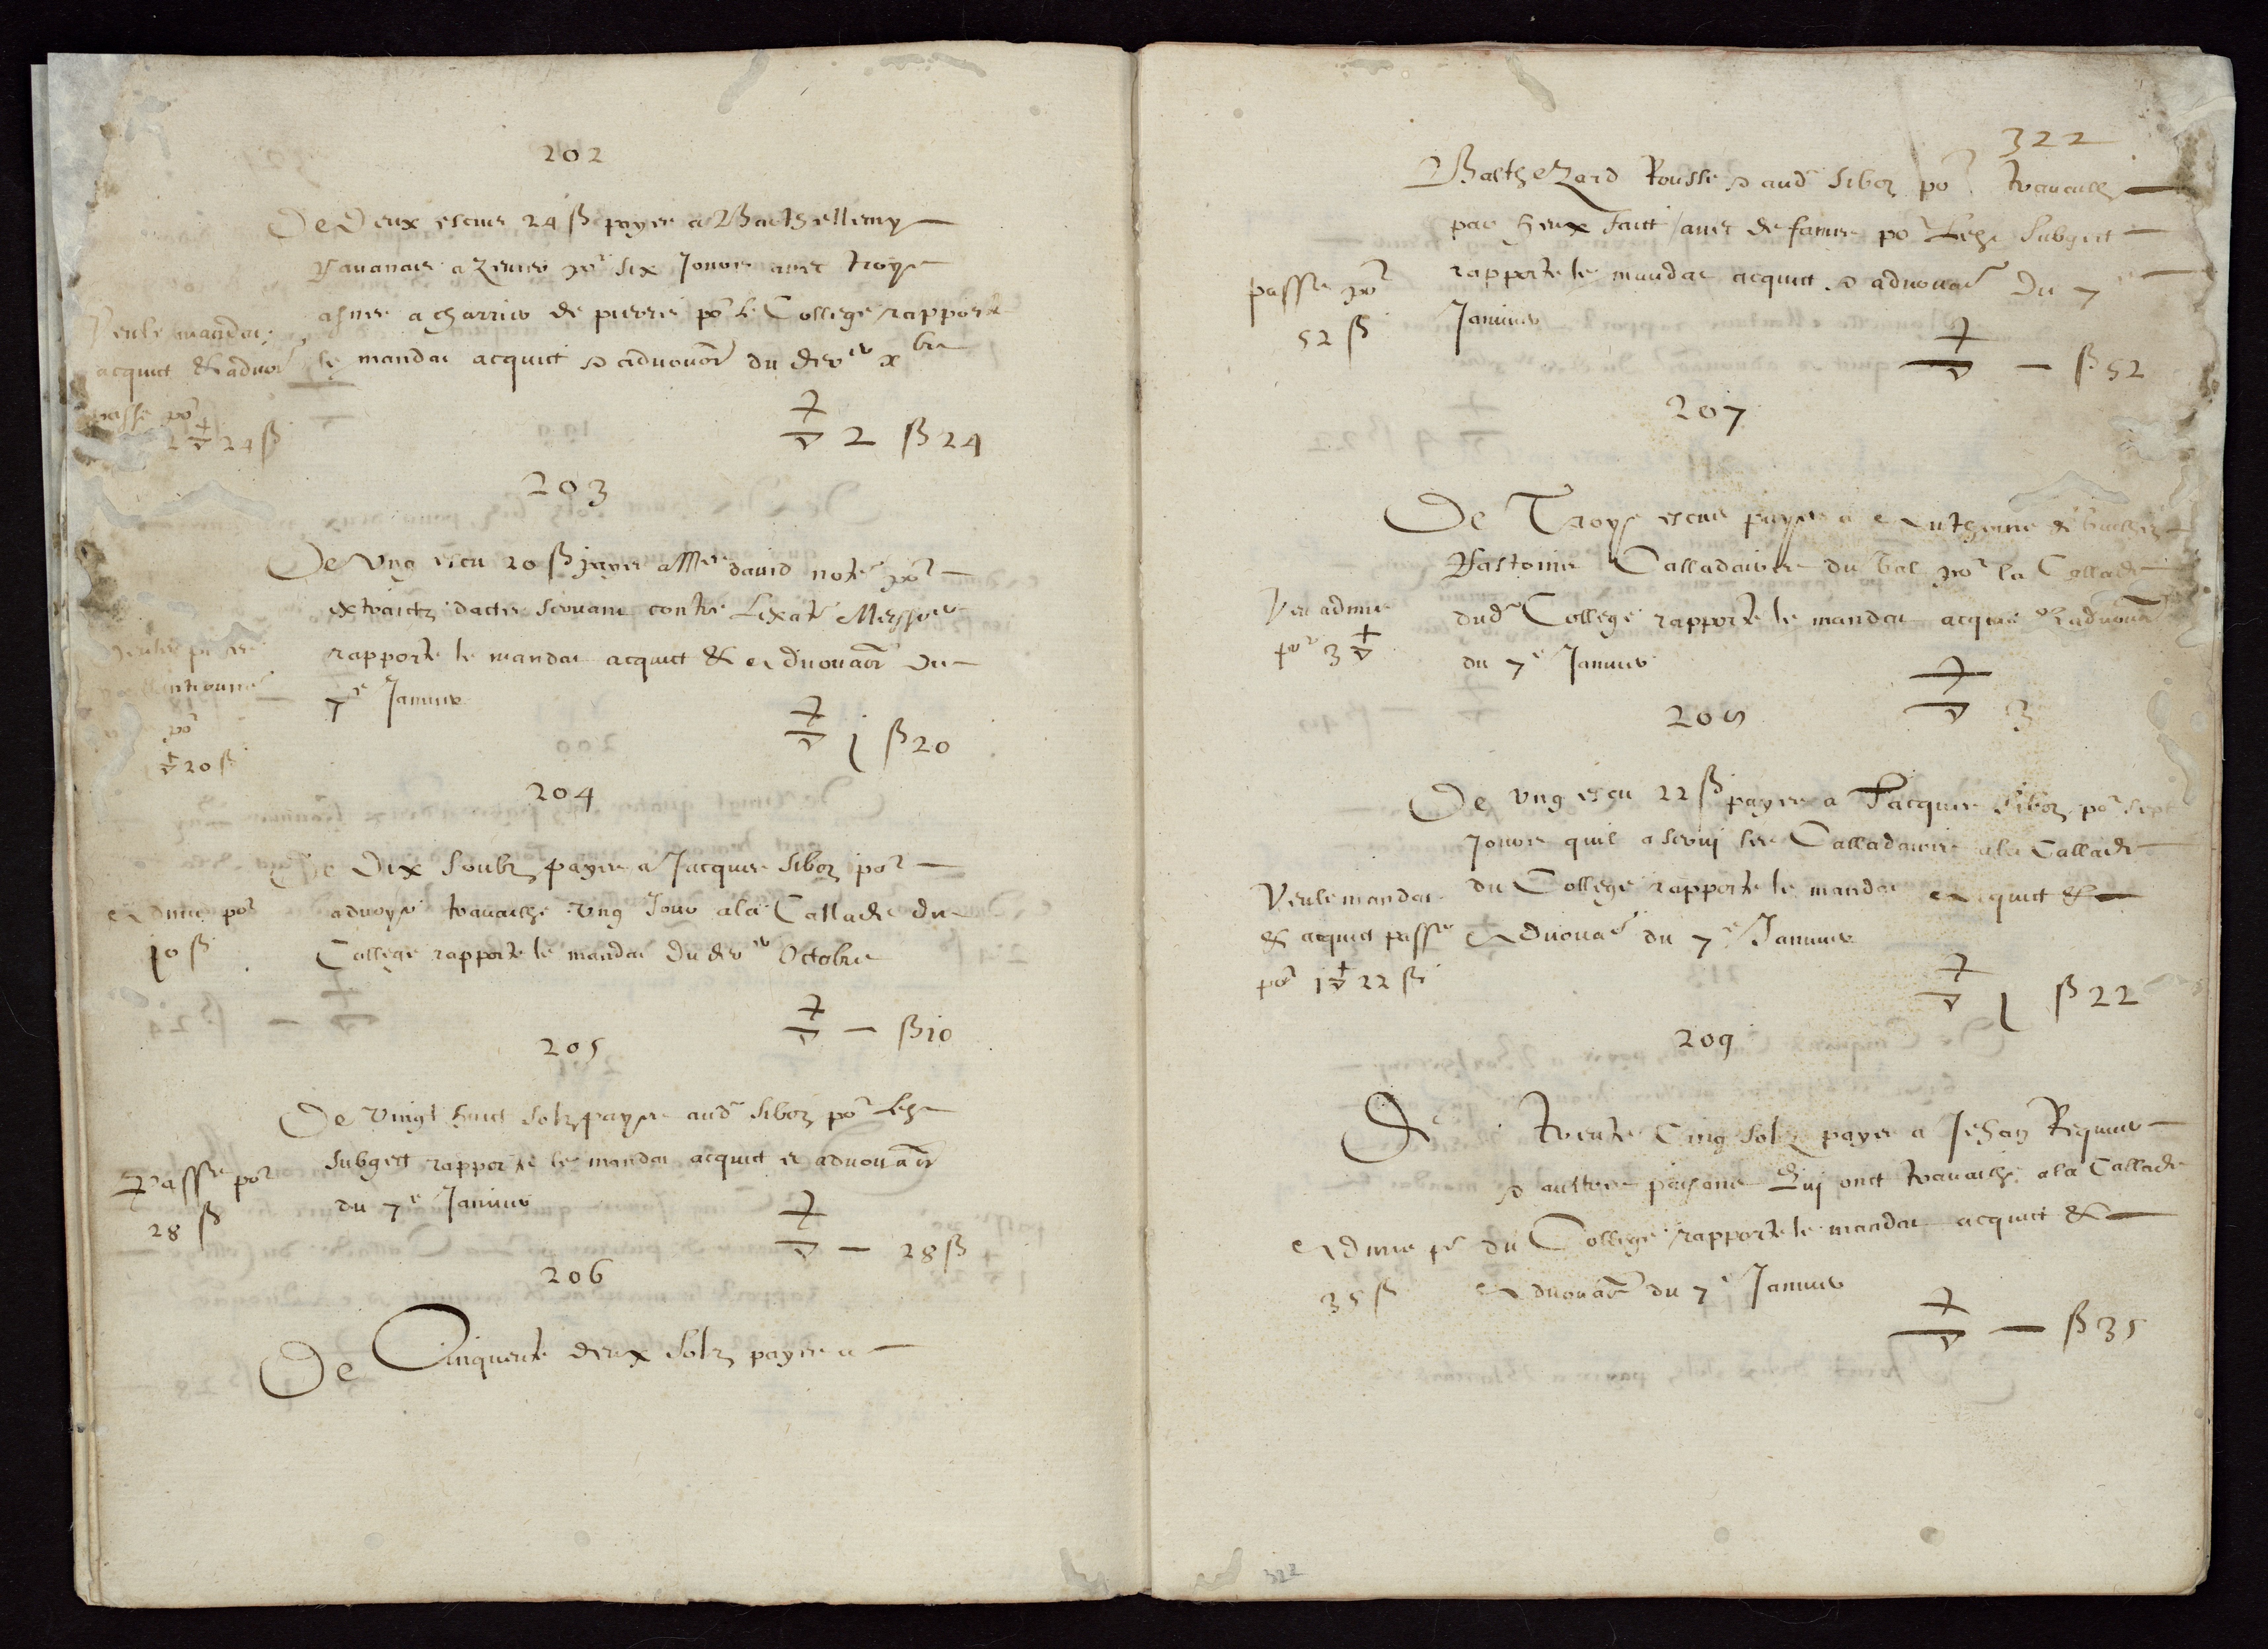 202
De Deux escus 24 ß payes a Barthellemy
ravanas a zenier por six Jours avec troys
asnes a charrier de pierres por le College rapporte
le mandat acquict et advouacon du derer xbre
Veu le mandat
acquict & advon
passe por
2 24 ß
2 ß 24
203
De Ung escu 20 ß payes a Mer david notere por
extraictz dactes servant contre
rapporte le mandat acquict & Advouacon du
7e Janvier
por
20 ß
j ß 20
204
De Dix soubz payes a Jacques sibon por
advoyr travaillé ung Jour a la Callade du
College rapporte le mandat du derer Octobre
Admis por
10 ß
— ß 10
205
De vingt huict solz payes aud sibon por
subgect rapporte le mandat acquict et advouacon
du 7e Janvier
Passe por
28 ß
— 28 ß
206
De Cinquente deux solz payes a
322
Balthezard Rousse & aud sibon por travailh
par heux faict avec de por subgect
rapporte le mandat acquict & advouaon du 7e
Janvier
passe por
52 ß
— ß 52
207
De Troys escus payes a Anthoine &
Pastoure Calladaires du Val por la Callade
dud College rapporte le mandat acquict & advouacon
du 7e Janvier
Veu admis
por 3
3
208
De ung escu 22 ß payes a Jacques sibon por sept
Jours quil a servy les Calladaires a la Callade
du College rapporte le mandat Acquict &
Advouaon du 7e Janvier
Veu le mandat
& acquict passe
por 1 22 ß
j ß 22
209
De trente Cinq solz payes a Jehan Requier
& aultres paisans Qui ont travailhe a la Callade
du College rapporte le mandat acquict &
Advouacon du 7e Janvier
Admis por
35 ß
— ß 35
322